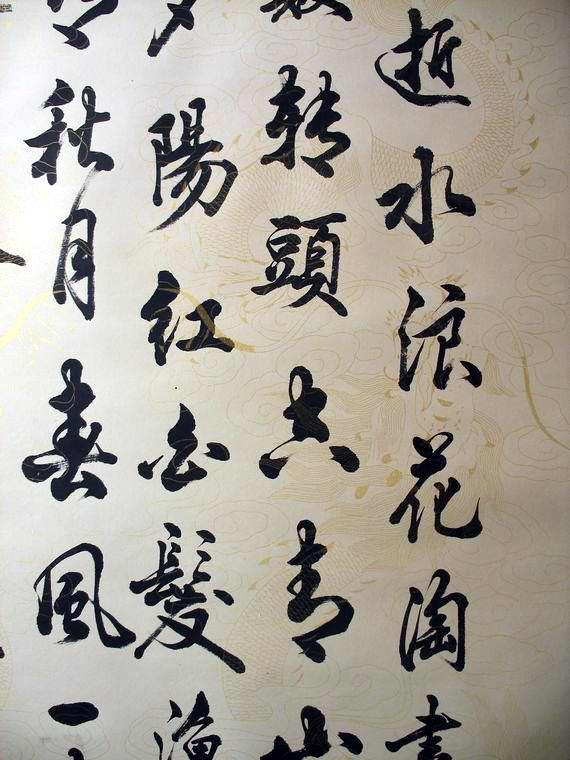 逝水浪花淘盡
轉頭空青山
夕陽紅白髮漁
秋月春風一